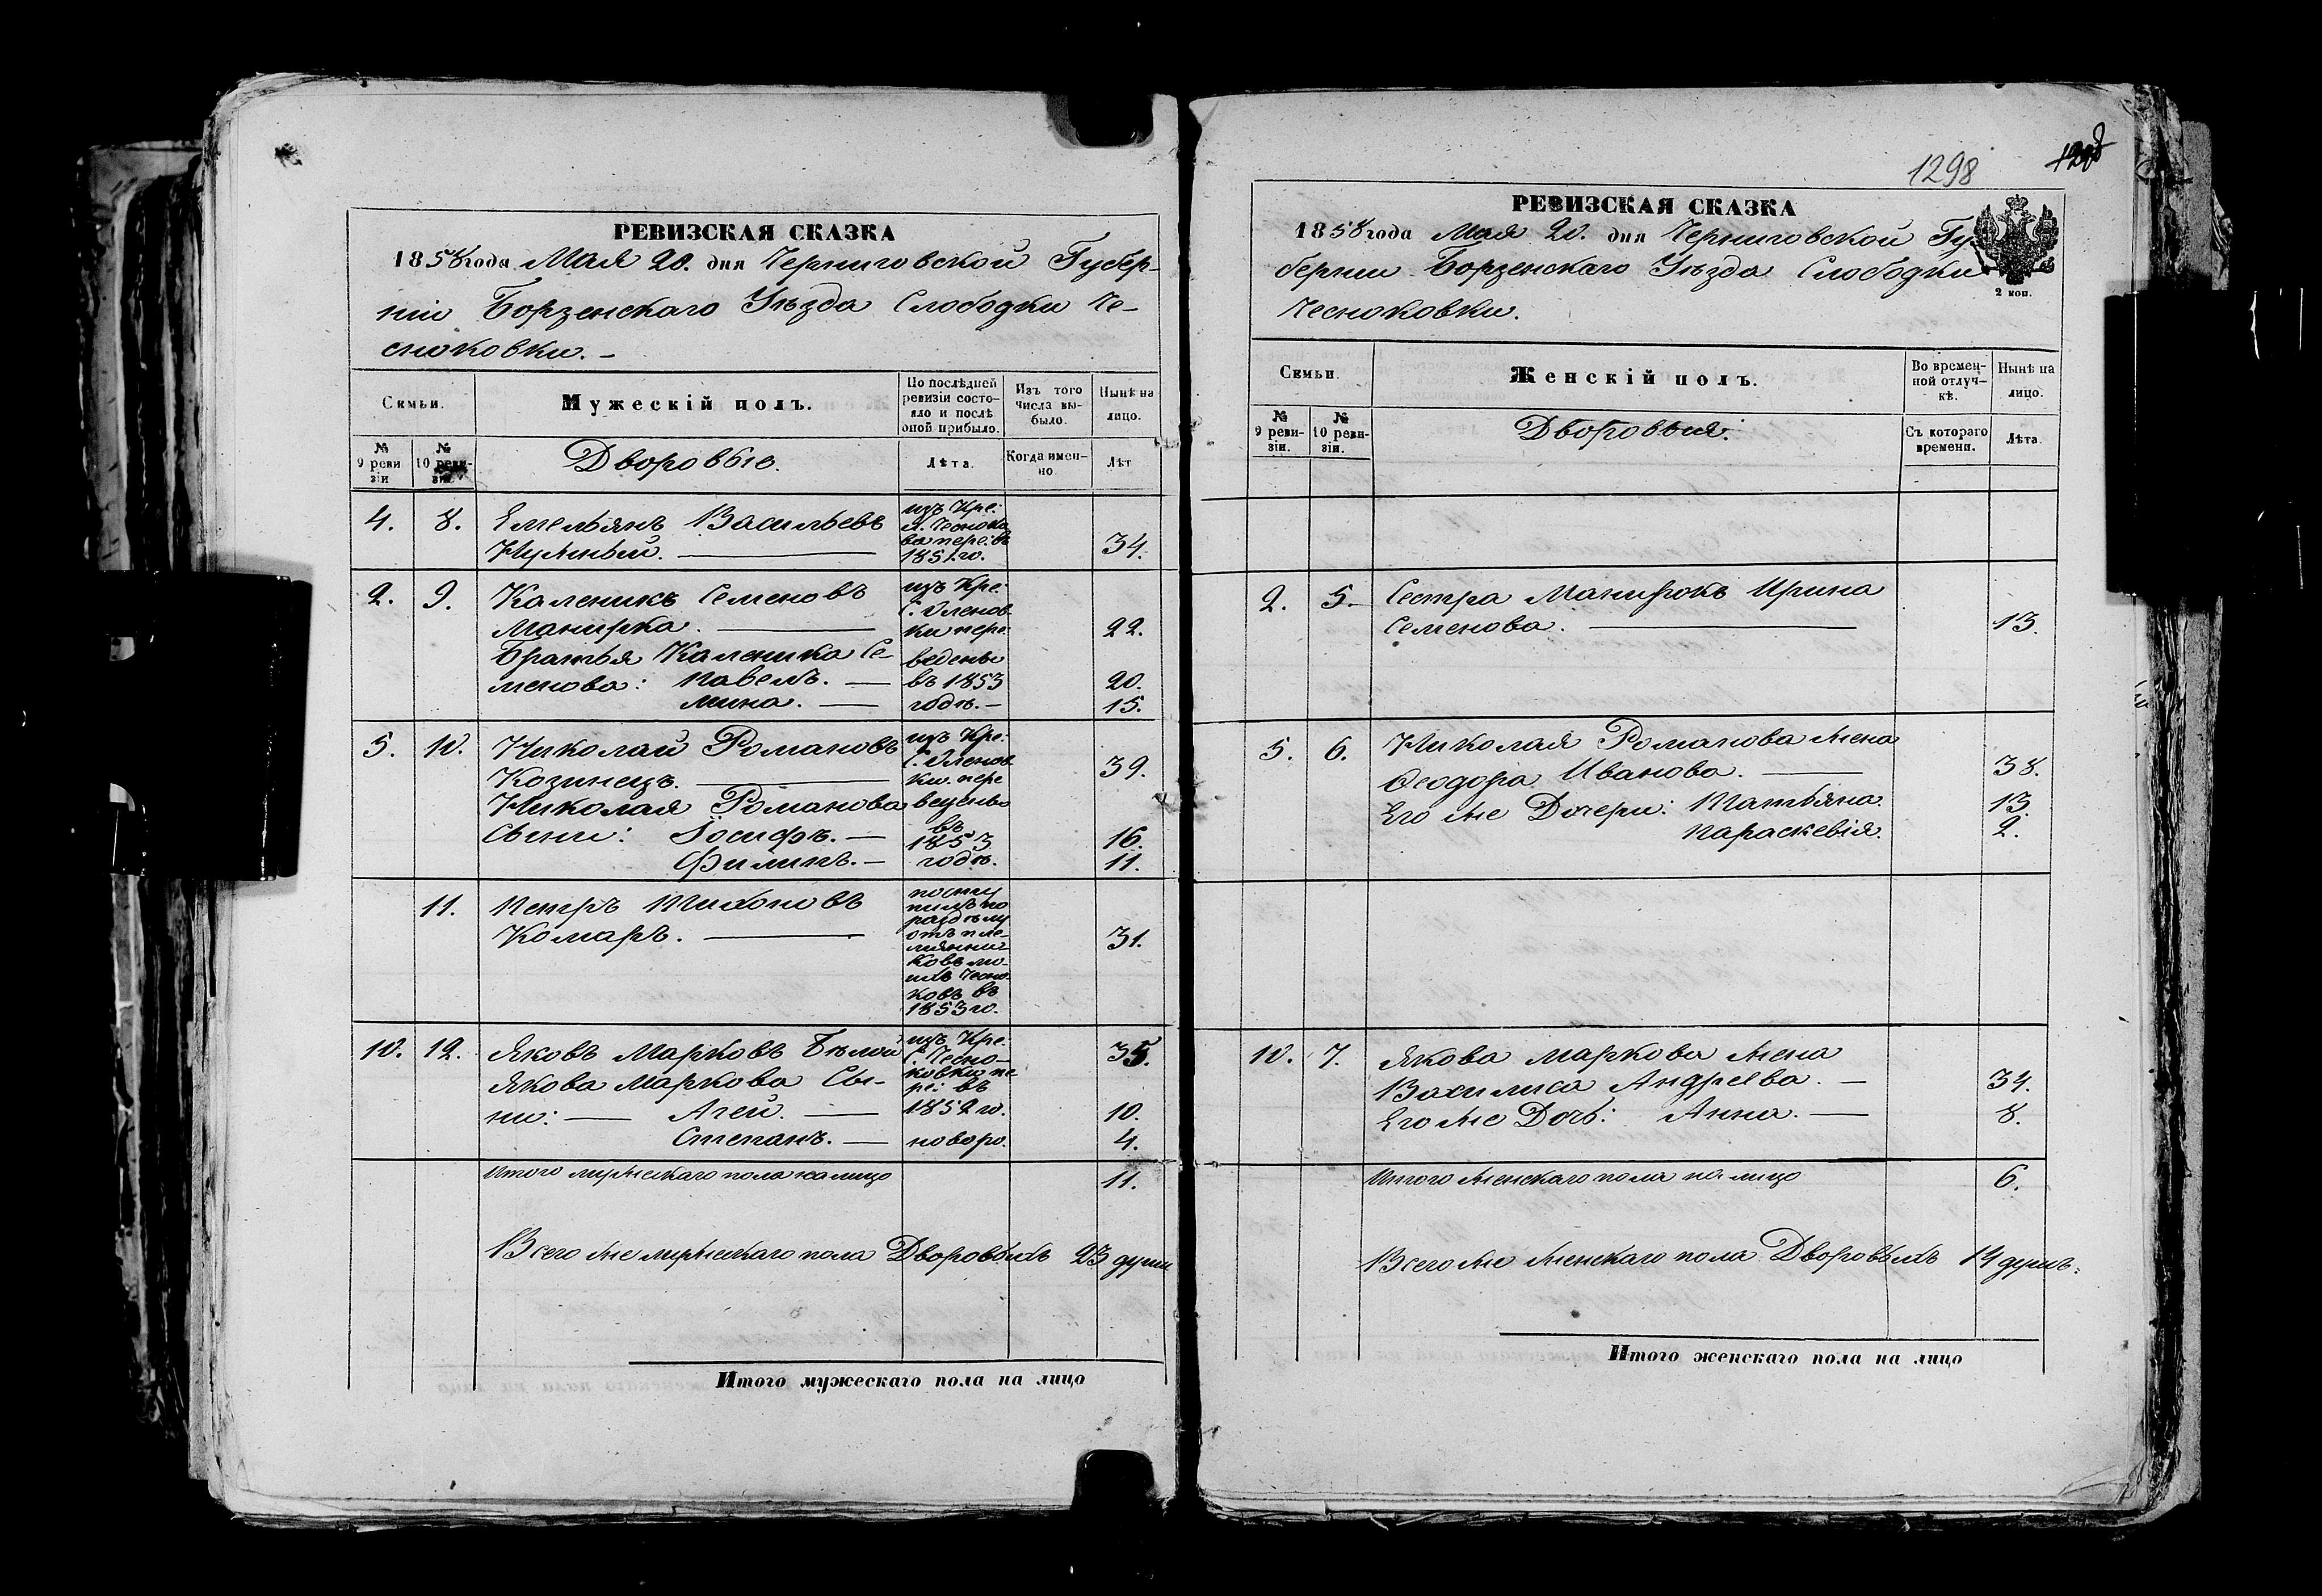 РЕВИЗСКАЯ СКАЗКА
1858 года Мая 20. дня Черниговской Губер-
ніи Борзенскаго Уѣзда Слободки Че-
сноковки. –
Семьи.
Мужескій полъ.
По послѣдней
ревизіи состо-
яло и послѣ
оной прибыло.
Изъ того
числа вы-
было.
Нынѣ на
лицо.
№
9 реви
зіи
№
10 реви-
зіи.
Дворовые.
Лѣта.
Когда имен-
но
Лѣт
4. 8. Емельянъ Васильевъ
34.
изъ Кре:
ва пере: въ
1851 го.
2. 9. Каленикъ Семеновъ
Манирка. 22.
Братья Каленика Се-
менова: Павелъ. 20.
Мина. 15.
изъ Кре:
С. Оленов
ки пере:
ведены
въ 1853
годѣ. –
5. 10. Николай Романовъ
Козинецъ. 39.
Николая Романова
Сыни: Іосифъ. 16.
Филипъ. – 11.
изъ Кре:
С. Оленов
ки. пере
ведены
въ
1853
годѣ.
11. Петръ Тихоновъ
Комаръ. 31.
посту
пилъ по
раздѣлу
отъ пле-
мянни-
ковъ по-
мѣ Чесно.
ковъ въ
1853 го.
10. 12. Яковъ Марковъ Бѣлой 35.
Якова Маркова Сы-
ни: Агей. 10.
Степанъ. 4.
изъ Кре:
С. Чесно-
ковки пе
ре: въ
1852 го.
новоро.
Итого мужескаго пола на лицо 11.
Всего же мужескаго пола Дворовыхъ 23 души
Итого мужескаго пола на лицо
1298
РЕВИЗСКАЯ СКАЗКА
1858 года Мая 20. дня Черниговской Гу
берніи Борзенскаго Уѣзда Слободки
Чесноковки.
2 коп.
Семьи.
Женскій полъ.
Во времен-
ной отлуч-
кѣ.
Нынѣ на
лицо.
№
9 реви-
зіи.
№
10 реви-
зіи.
Дворовыя:
Съ котораго
времени.
Лѣта.
2. 5. Сестра Манирокъ Ирина
Семенова. 13.
5. 6. Николая Романова жена
Ѳеодора Иванова. 38.
Его же Дочери: Татьяна. 13.
Параскевія. 2.
10. 7. Якова Маркова жена
Василиса Андреева. – 34.
Его же Дочь: Анна. 8.
Итого женскаго пола на лицо 6.
Всего же женскаго пола Дворовыхъ 14 душъ:
Итого женскаго пола на лицо